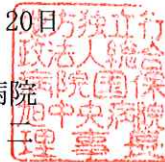 20日
地方独立行
政法人総合
病院国保
旭中央病院
理事長
病院